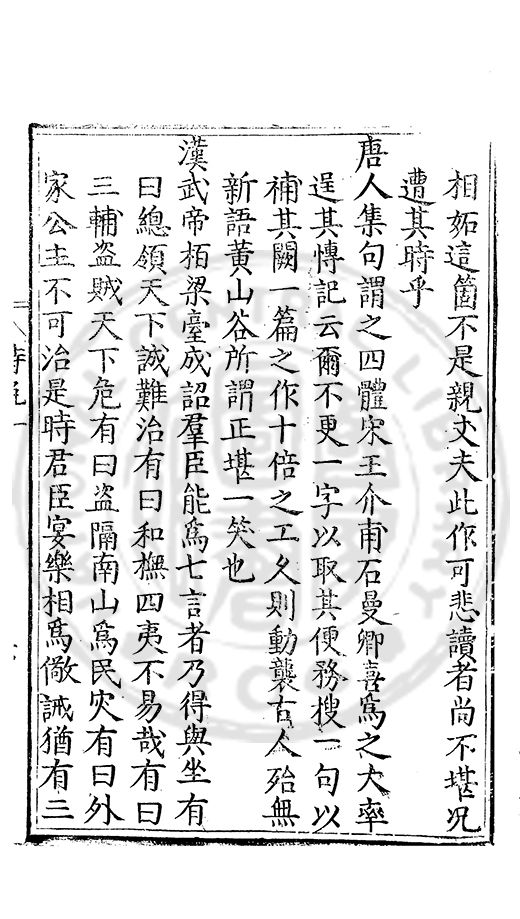 相妬這箇不是親丈夫此作可悲讀者尚不堪况
遭其時乎
唐人集句謂之四體宋王介甫石曼卿喜爲之大率
逞其慱記云爾不更一字以取其便務搜一句以
補其闕一篇之作十倍之工久則動襲古人殆無
新語黃山谷所謂正堪一笑也
漢武帝栢梁臺成詔羣臣能爲七言者乃得與坐有
曰總領天下誠難治有曰和撫四夷不易哉有曰
三輔盗賊天下危有曰盗隔南山爲民灾有曰外
家公主不可治是時君臣宴樂相爲儆誡猶有三